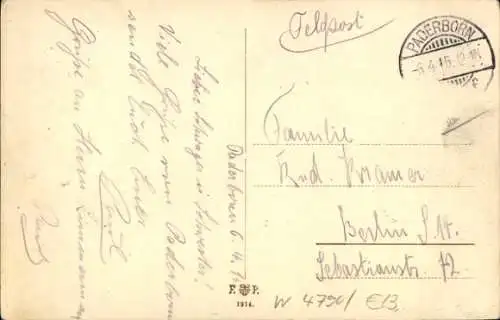 Feldpost
PADERBORN
Familie
Rud. Kramer
Berlin S.W.
Sebastianstr. 72
Paderborn 6.4.
Lieber Schwager u. Schwester!
Viele Grüße von Paderborn
sendet Euch Euer
Paul
Grüße an Herrn
1914.
W 4790/ €13